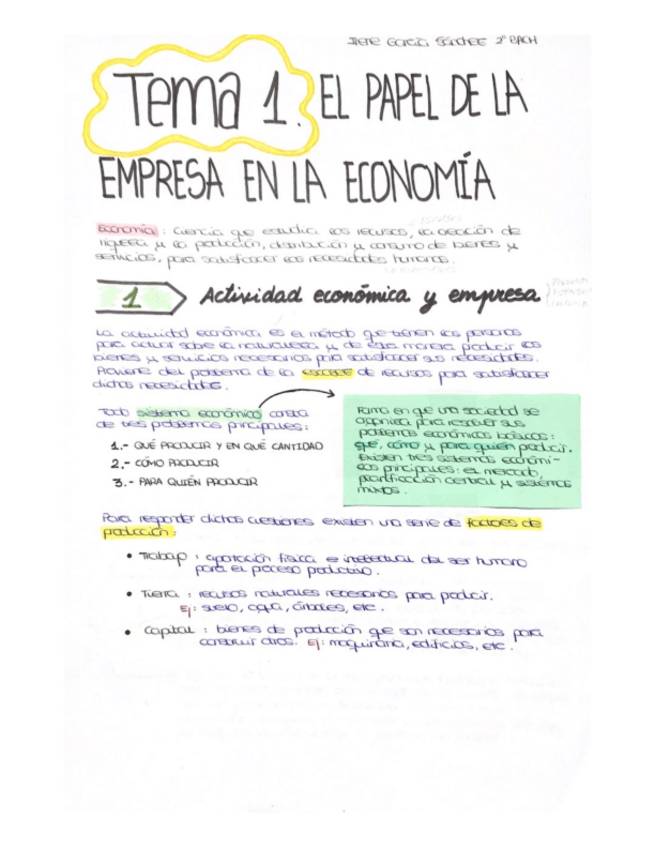 Irene García Sánchez 2º BACH
Tema 1. EL PAPEL DE LA
EMPRESA EN LA ECONOMÍA
Economía: Ciencia que estudia los recursos, la creación de
riqueza y la producción, distribución y consumo de bienes y
servicios, para satisfacer las necesidades humanas.
1 Actividad económica y empresa
La actividad económica es el método que tienen las personas
para actuar sobre la naturaleza y de esa manera producir los
bienes y servicios necesarios para satisfacer sus necesidades.
Proviene del problema de la escasez de recursos para satisfacer
dichas necesidades.
Todo sistema económico consta
de tres problemas principales:
1.- QUÉ PRODUCIR Y EN QUÉ CANTIDAD
2.- CÓMO PRODUCIR
3.- PARA QUIÉN PRODUCIR
Forma en que una sociedad se
organiza para resolver sus
problemas económicos básicos:
qué, cómo y para quién producir.
Existen tres sistemas económi-
cos principales: el mercado,
planificación central y sistemas
mixtos.
Para responder dichas cuestiones existen una serie de factores de
producción:
• Trabajo: aportación física e intelectual del ser humano
para el proceso productivo.
• Tierra: recursos naturales necesarios para producir.
Ej: suelo, agua, árboles, etc.
• Capital: bienes de producción que son necesarios para
construir otros. Ej: maquinaria, edificios, etc.